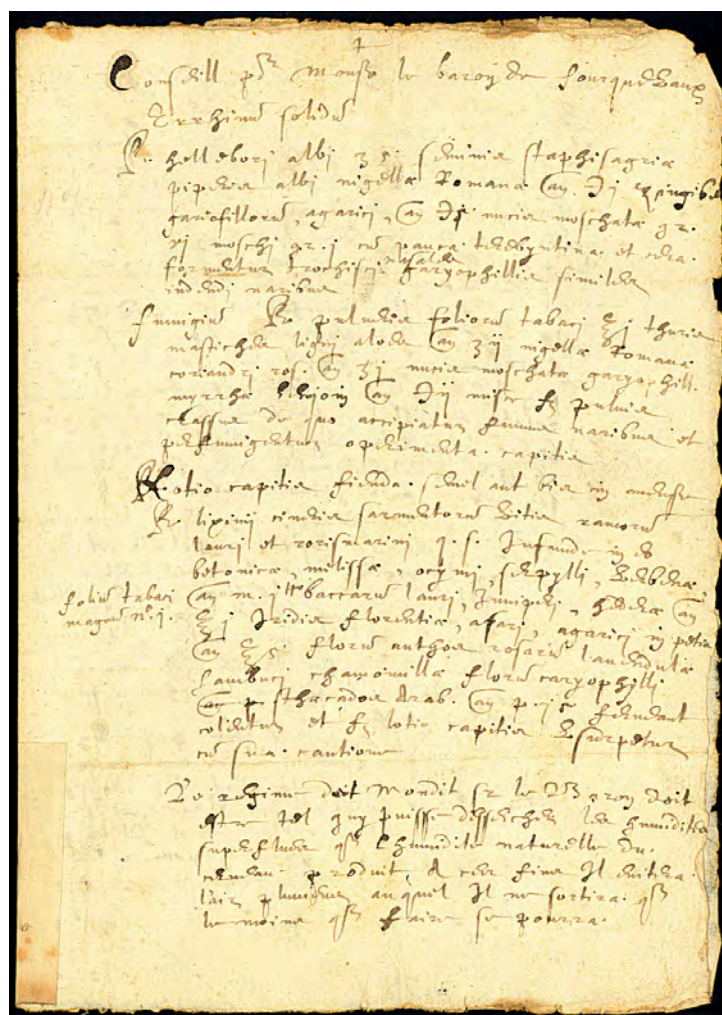 Conseill po^r Monsr le baron de fourquevaux
Errhinũ solidũ
℞. hellebori albi ʒ ß seminis staphisagriæ
piperis albi nigellæ Romanæ añ. ℈j zingibe
gariofillorũ, agarici, añ ℈ß nucis moschatæ gr.
vj moschi gr. j cũ pauca terebyntina et cera.
formentur trochisci nasales garyophillis similes
indendi naribus
fumigiũ ℞ pulveris foliorũ tabaci ℥j thuris
mastiches ligni aloes añ ʒij nigellæ Romanæ
coriandri ros. añ ʒj nucis moschatæ garyophill.
myrrhæ benjoin añ ℈ij misce f. pulvis
crassus de quo accipiatur fumus naribus et
perfumigentur operimenta. capitis
Lotio capitis fienda. semel aut bis in mense
℞. lixivij cineris sarmentorũ vitis ramorũ
lauri et rorismarini q. s. Infunde in eo
betonicæ, melissæ, ocymi, serpylli, verbenæ,
foliũ tabaci
magnũ n°. j.
añ m. j baccarũ lauri, Juniperi, hederæ añ
℥j Iridis florentiæ, asari, agarici in petia
añ ℥ß. florũ anthos rosarũ lavendulæ
sambuci chamomillæ florũ caryophylli
sthæcados Arab. añ p. jß ferveant
colentur et f. lotio capitis usurpetur
cũ sua. cautione
Le regime doit Mondit sr le Baron doit
estre tel quy puisse dessecher les humidites
superflues q̃ l'humidite naturelle du.
cerveau produit, A ces fins Il evitera.
l'air pluvieux auquel Il ne sortira. q̃
le moins q̃ faire se pourra.